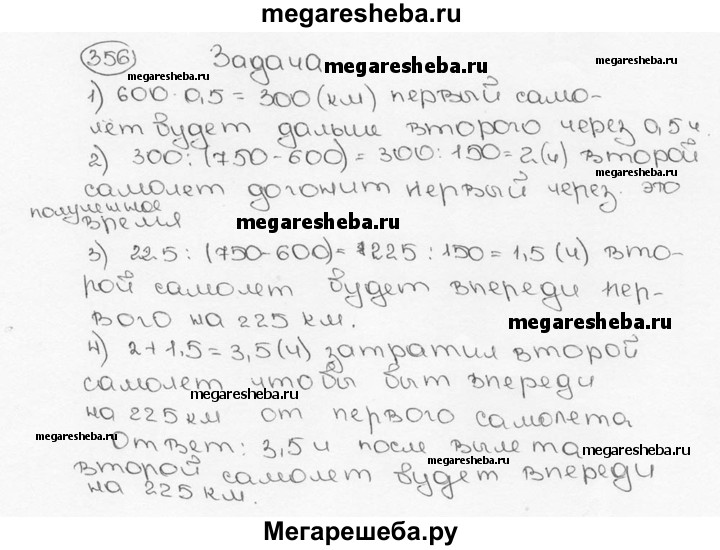 megaresheba.ru
356) Задача megaresheba.ru
megaresheba.ru
1) 600·0,5=300(км) первый само-
лёт будет дальше второго через 0,5ч.
2) 300:(750-600)=300:150=2(ч) второй
самолет догонит первый через это
полученное
время megaresheba.ru
3) 225:(750-600)=225:150=1,5(ч) вто-
рой самолет будет впереди пер-
вого на 225 км. megaresheba.ru
4) 2+1,5=3,5(ч) затратил второй
самолет чтобы быт впереди
megaresheba.ru
на 225км от первого самолета
megaresheba.ru
Ответ: 3,5ч после вылета megaresheba.ru
второй самолет будет впереди
megaresheba.ru
на 225км.
Мегарешеба.ру